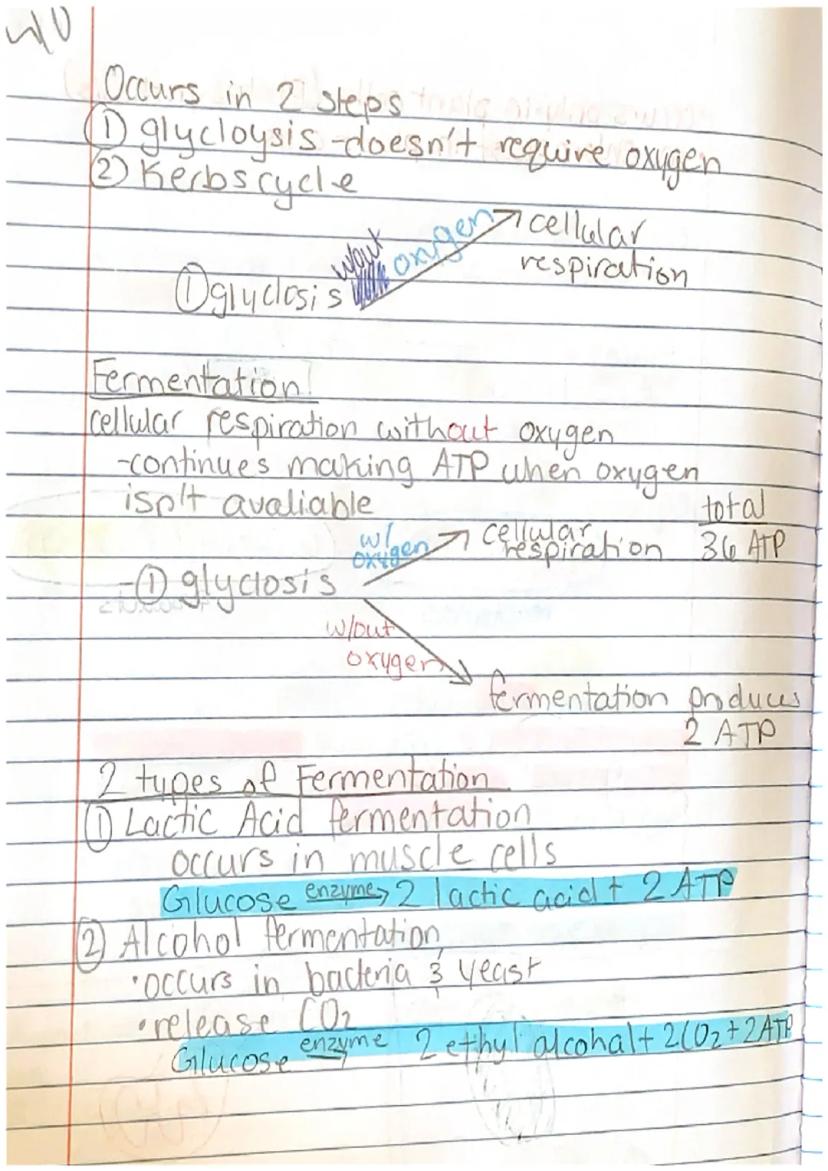 W/U
Occurs in 2 steps
① glycloysis -doesn't require oxygen
② Kerbs cycle
w/out oxygen
cellular
respiration
① glyclosis
Fermentation
cellular respiration without oxygen
-continues making ATP when oxygen
isn't avaliable
total
w/ oxygen
cellular respiration 36 ATP
-① glyclosis
w/out
oxygen
fermentation produces
2 ATP
2 types of Fermentation
① Lactic Acid fermentation
occurs in muscle cells
Glucose enzyme→ 2 lactic acid + 2 ATP
② Alcohol fermentation
•occurs in bacteria & yeast
•release CO2
Glucose enzyme→ 2 ethyl alcohal + 2CO2 + 2ATP